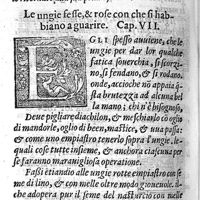 Le ungie fesse, & rose con che si hab-
biano a guarire. Cap. VII.
EGLI spesso auuiene, che le
ungie per dar lor qualche
fatica souerchia, si storzi-
no, si fendano, & si rodano.
onde, accioche non appaia
questa bruttezza ad alcuna bel
la mano; chi n'è bisognoso,
Deue pigliare diachilon, & meschiarlo cō oglio
di mandorle, oglio di been, mastice, & uua passa:
& come uno empiastro tenerlo sopra l'ungie, le-
quali cose tutte insieme, & anchora ciascuna per
se faranno marauigliosa operatione.
Fassi etiandio alle ungie rotte empiastro con se
me di lino, & con melle oltre modo gioueuole.
che adopera pur il seme del nasturcio con melle